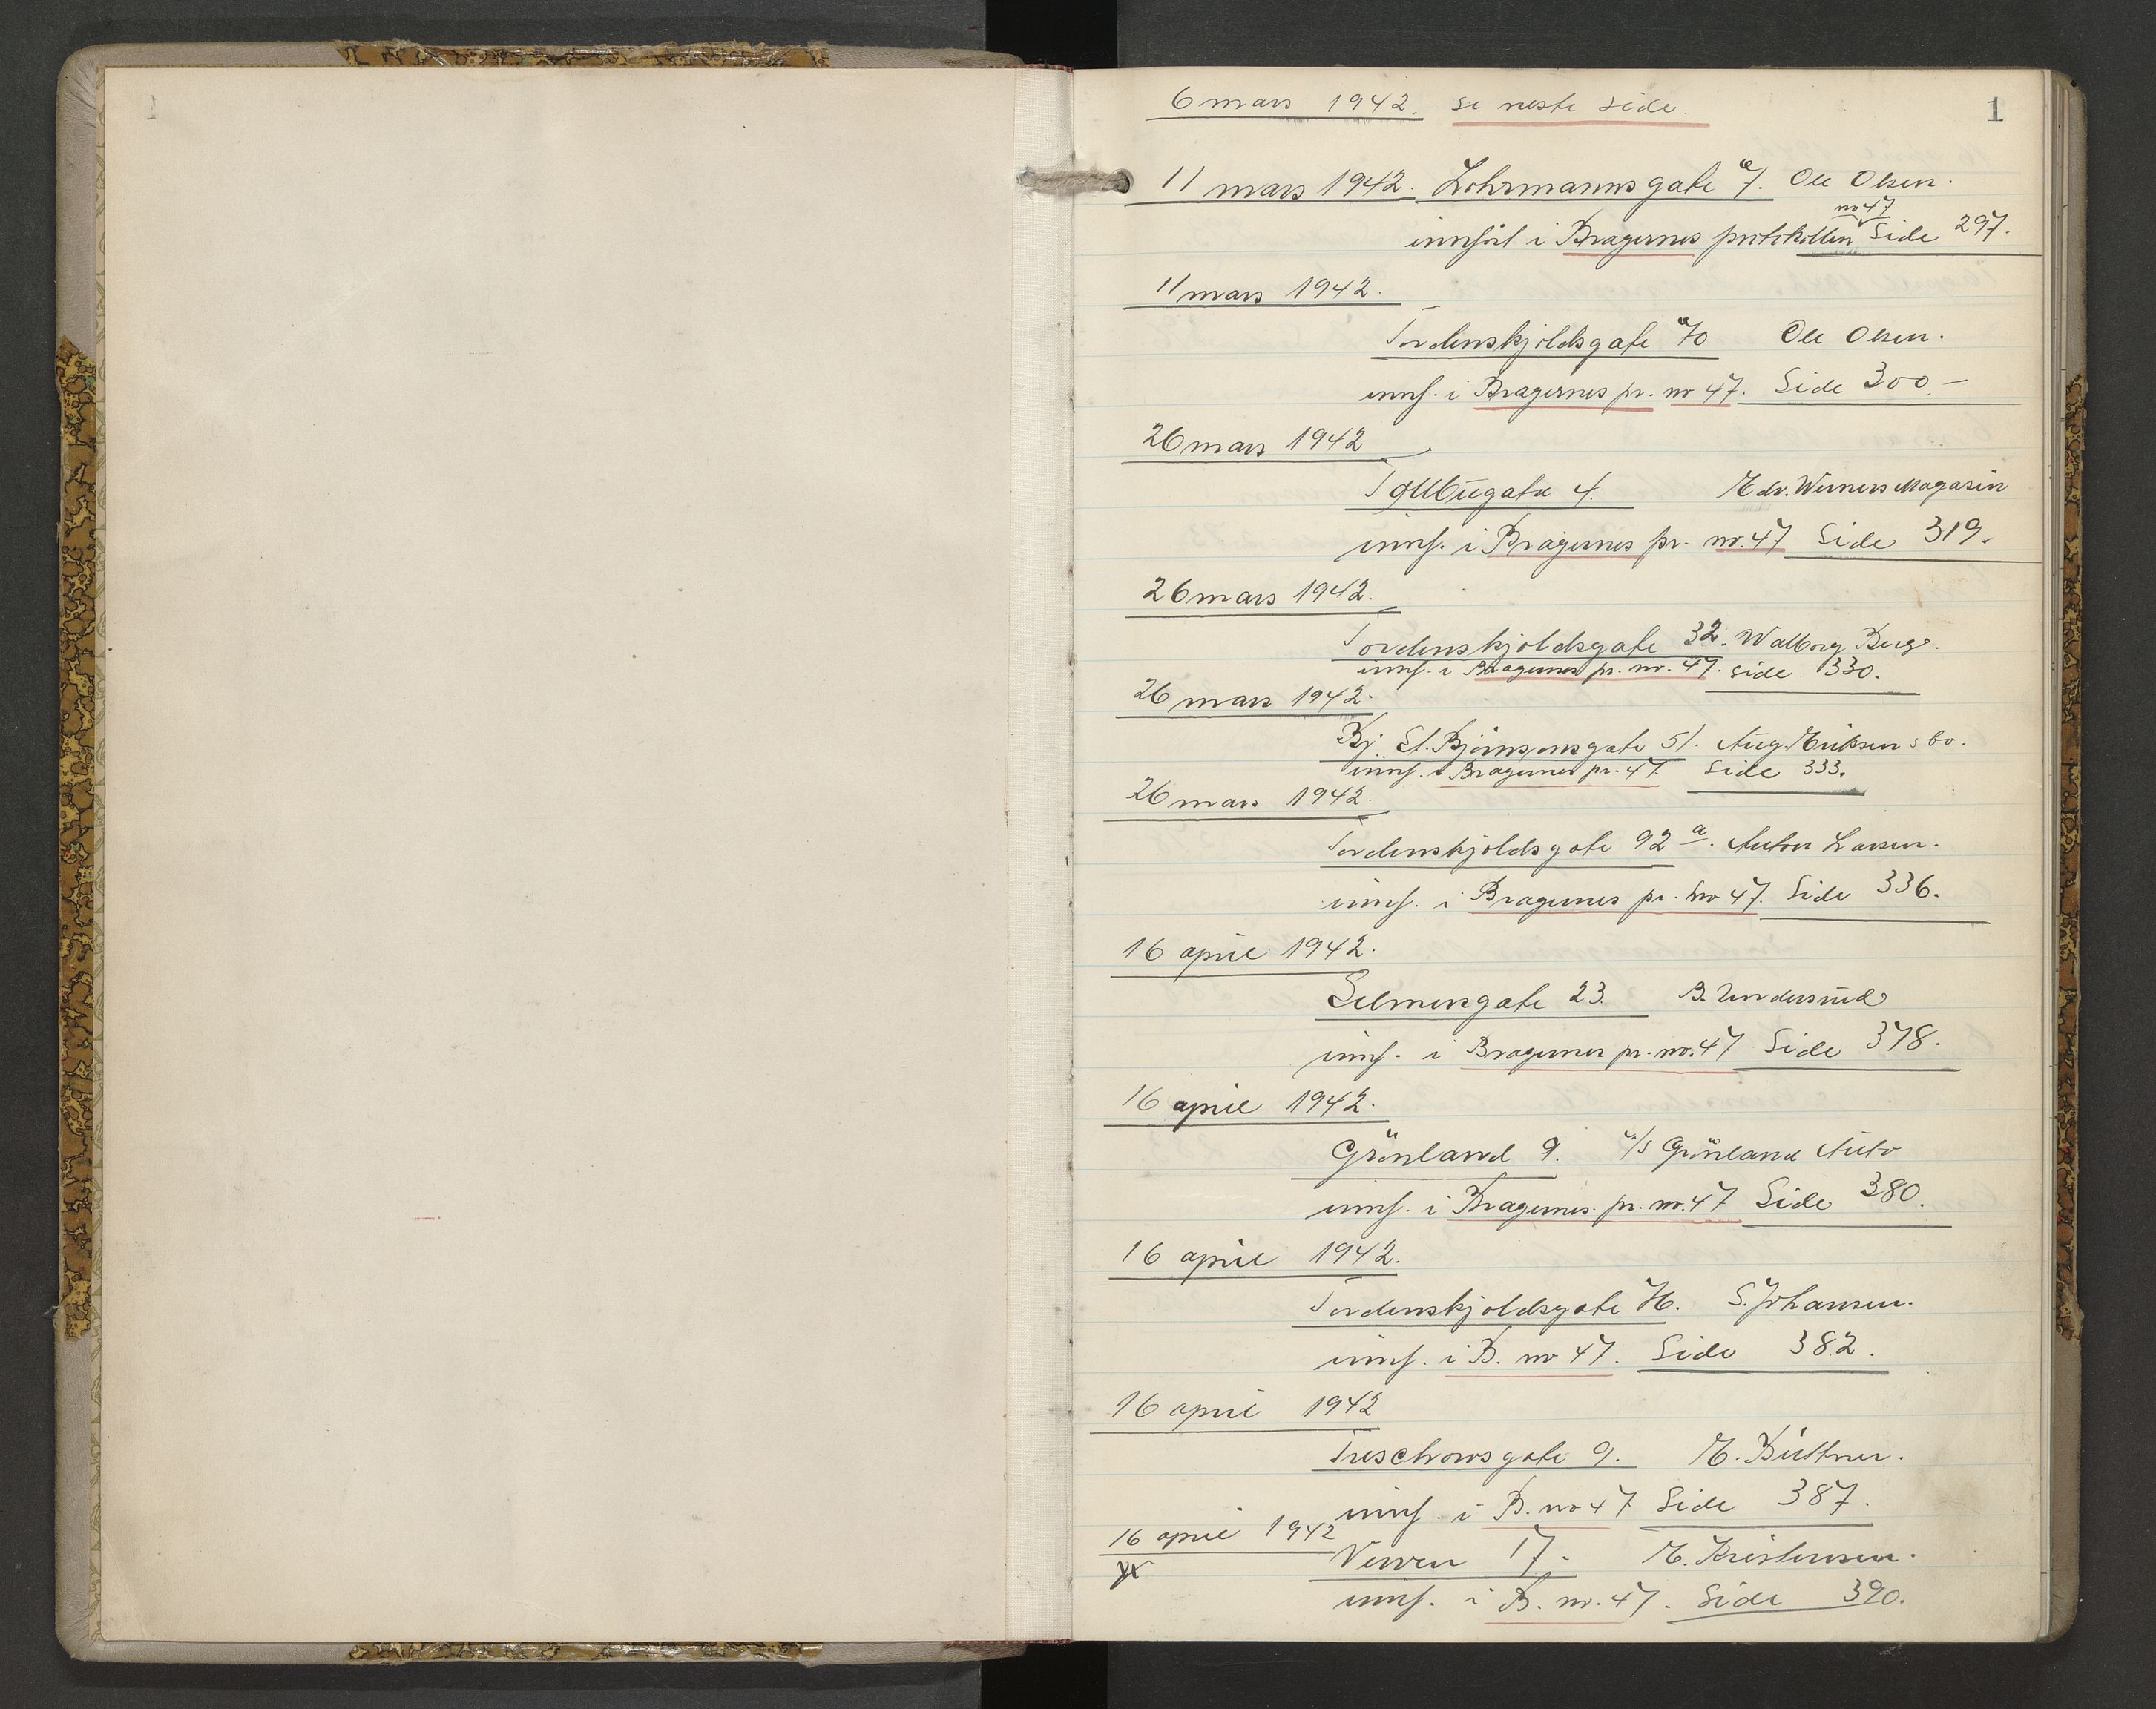 1
6 mars 1942. se neste side.
11 mars 1942. Lohrmannsgate 7. Ole Olsen.
no 47
innført i Bragernes protokollen Side 297.
11 mars 1942.
Tordenskjoldsgate 70 Ole Olsen.
innf. i Bragernes pr. no 47. Side 300 —
26 mars 1942
Tollbugata 4. Edv. Werners Magasin
innf. i Bragernes pr. no. 47 Side 319.
26 mars 1942.
Tordenskjoldsgate 32. Walborg Berg.
innf. i Bragernes pr. no. 47. side 330.
26 mars 1942.
Bj. St. Bjørnsonsgate 51. Aug. Eriksens bo.
innf. i Bragernes pr. 47. Side 333.
26 mars 1942.
Tordenskjoldsgate 92 a. Anton Larsen.
innf. i Bragernes pr. no 47. Side 336.
16 april 1942.
Selmersgate 23. B. Undersrud
innf. i Bragernes pr. no. 47 Side 378.
16 april 1942.
Grönland 9. a/s Grönland Auto
innf. i Bragernes pr. no. 47 Side 380.
16 april 1942.
Tordenskjoldsgate S. Johansen.
innf. i B. no 47. Side 382.
16 april 1942
Treschowsgate 9. E. Büttner.
innf. i B. no 47 Side 387.
16 april 1942
Verven 17. E. Kristensen.
innf. i B. no. 47. Side 390.